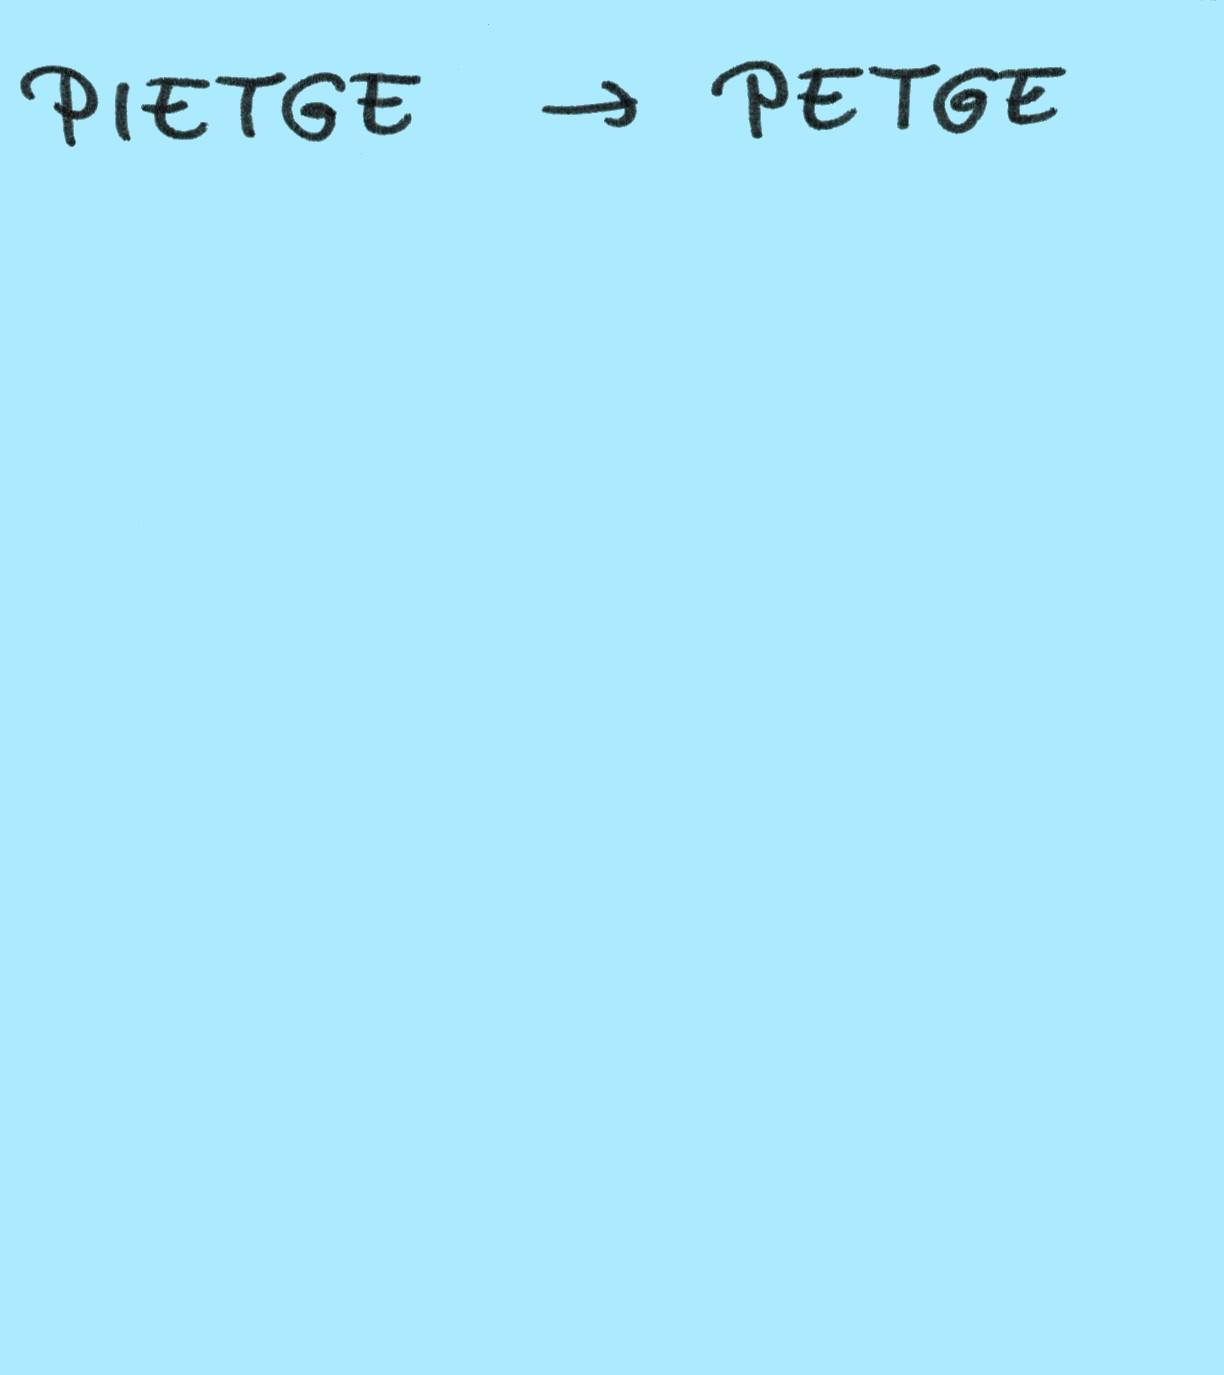 PIETGE → PETGE